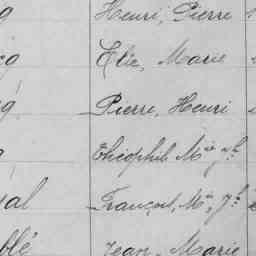 g Henri, Pierre
g Elie, Marie
g Pierre, Henri
Théophile, Mie Jh
al François, Mie, Jh
blé Jean, Marie